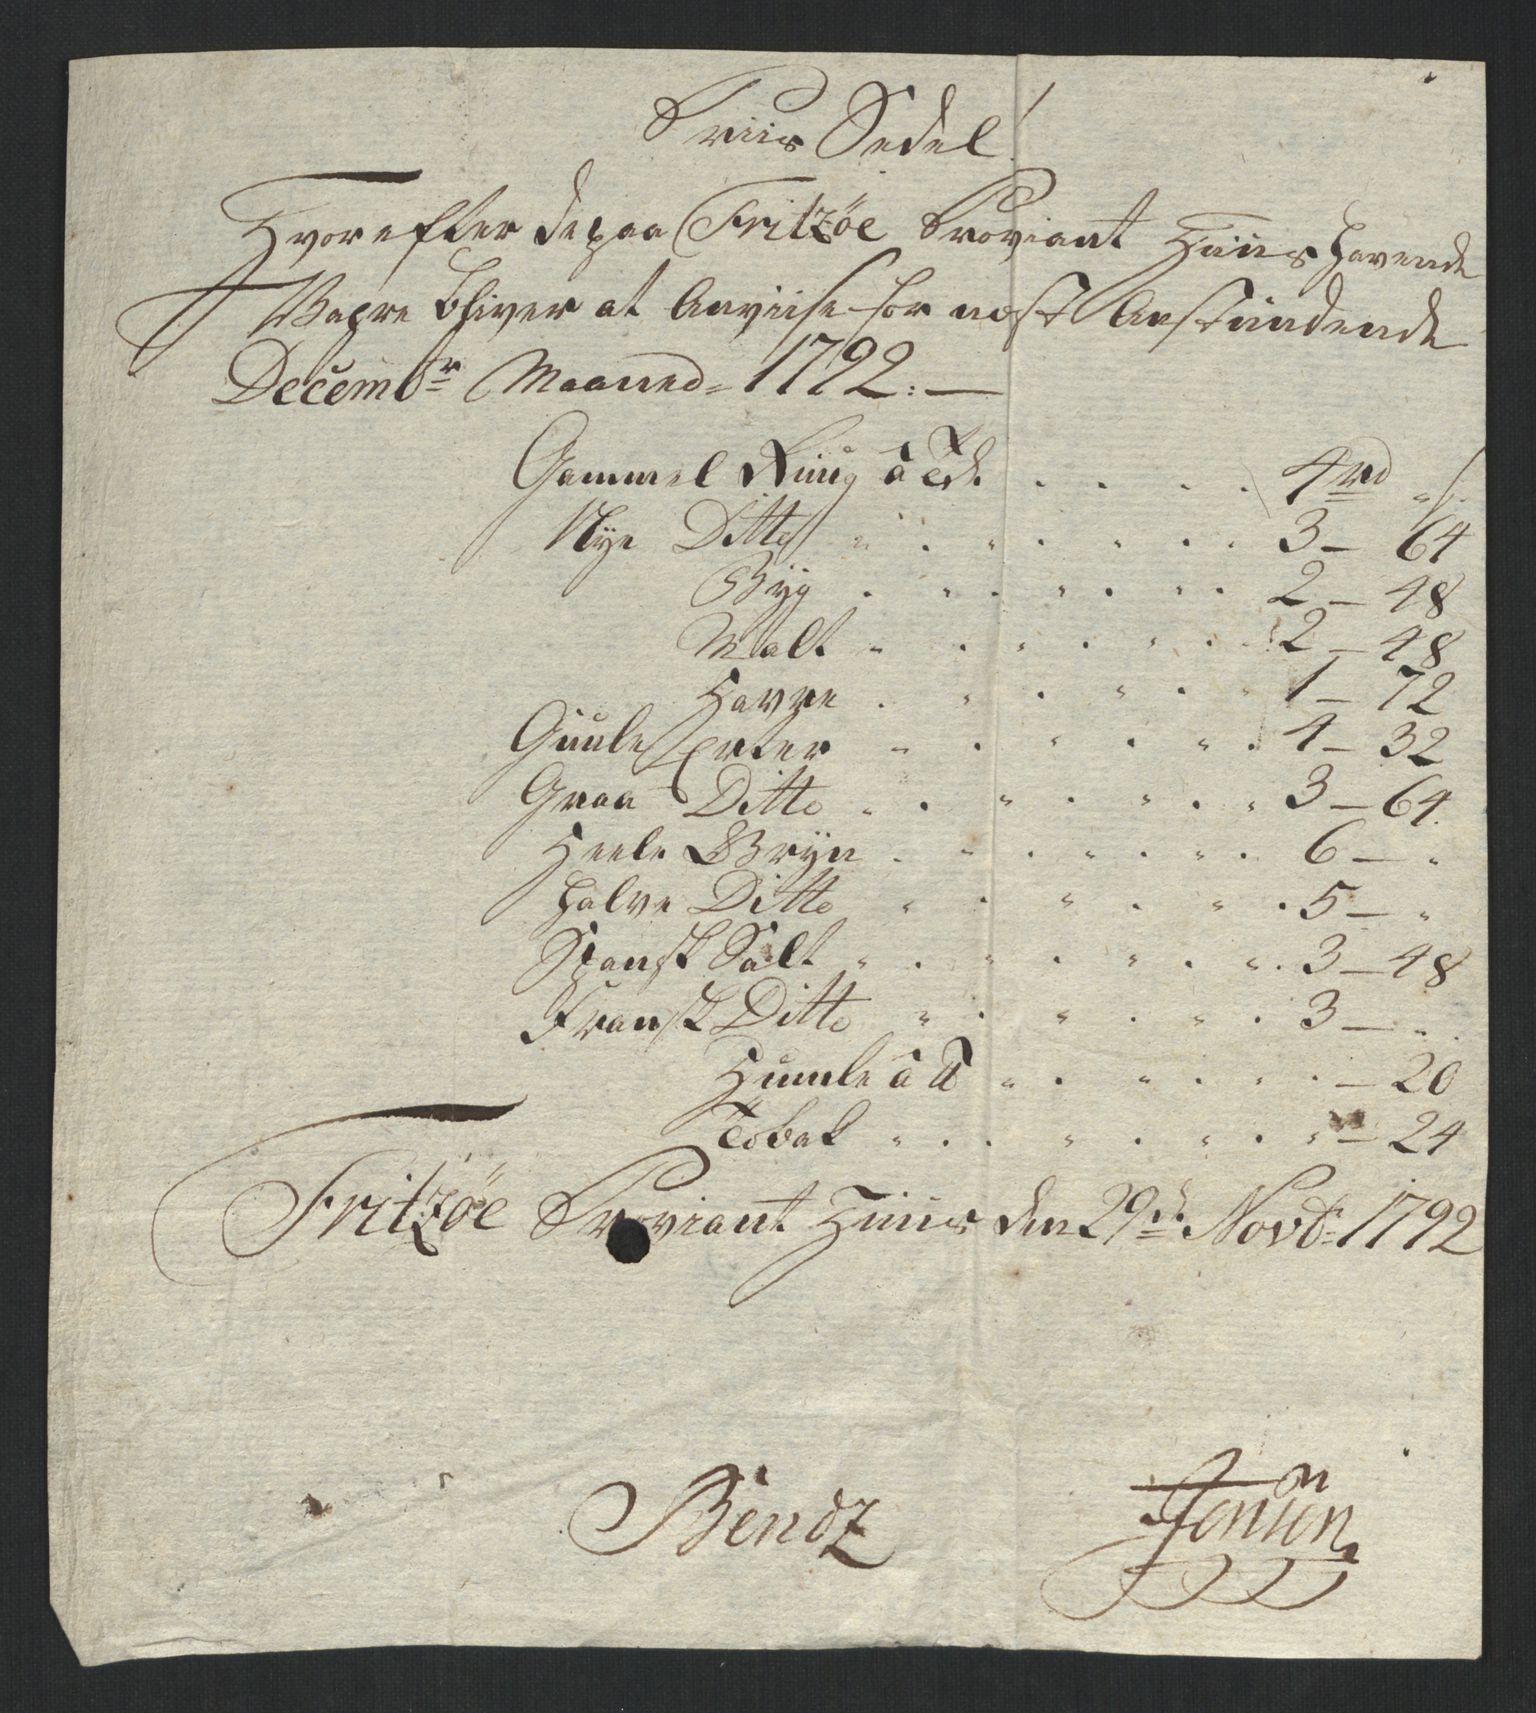 Priis Sedel!
Hvorefter de paa Fritzöe Proviant Huus havende
Vahre bliver at Anviise for næst Anstundende
Decembr Maaned 1792:—
Gammel Ruug â Tde . . . . 4 rd " s.
Nÿe Ditto " . . . . . . 3 — 64
Bÿg . . . . . . . 2 — 48
Malt . . . . . . . 2 — 48
Havre . . . . . . 1 — 72
Guule Erter . . . . . . 4 — 32
Graa Ditto . . . . . . . 3 — 64
Heele Grÿn . . . . . . . 6 — "
halve Ditto . . . . . . 5 — "
Spansk Salt . . . . . . . 3 — 48
Fransk Ditto . . . . . . 3 — "
Humle â ℔ . . . . . . — 20
Tobak . . . . . . . . — 24
Fritzöe Proviant Huus den 29de Novbr 1792
Bendz Jensen